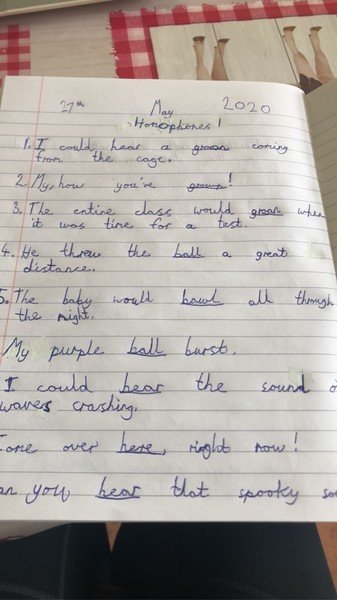 27th May 2020
Homophones!
1. I could hear a groan coming
from the cage.
2 My, how you've grown!
3. The entire class would groan when
it was time for a test.
4. He threw the ball a great
distance.
5. The baby would bawl all through
the night.
My purple ball burst.
I could hear the sound o
waves crashing.
ome over here, right now!
an you hear that spooky so